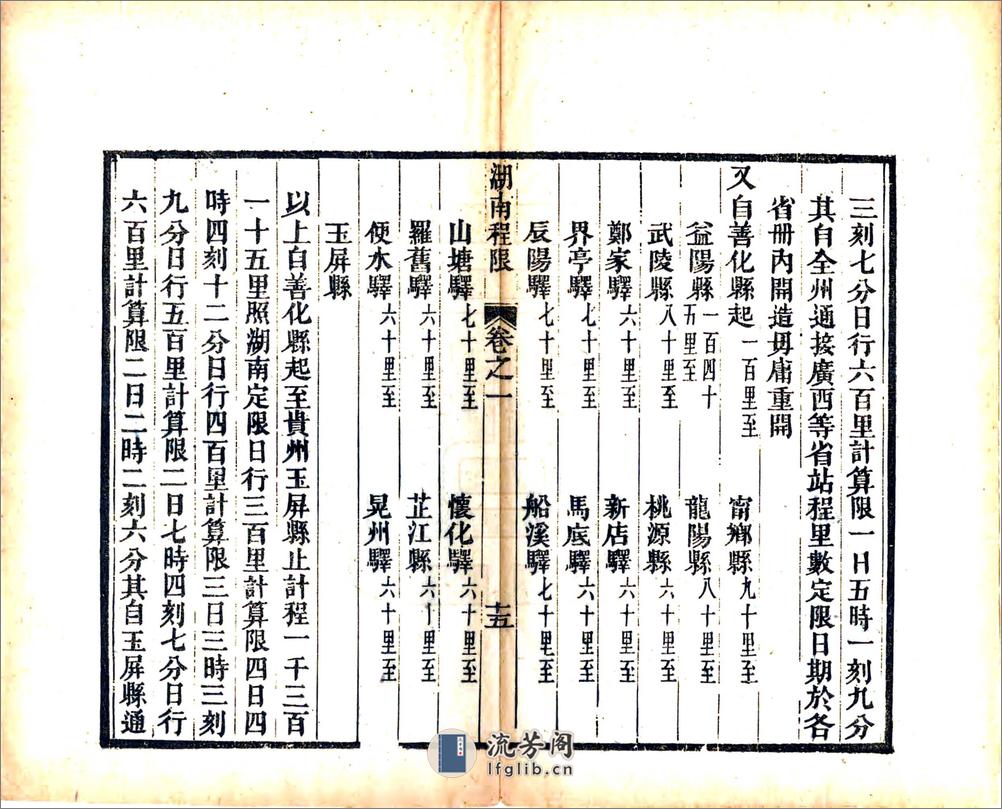 三刻七分日行六百里計算限一日五時一刻九分
其自全州通接廣西等省站程里數定限日期於各
省冊內開造毋庸重開
又自善化縣起一百里至 甯鄉縣九十里至
益陽縣一百四十五里至 龍陽縣八十里至
武陵縣八十里至 桃源縣六十里至
鄭家驛六十里至 新店驛六十里至
界亭驛七十里至 馬底驛六十里至
辰陽驛七十里至 船溪驛七十里至
湖南程限 卷之一 十五
山塘驛七十里至 懷化驛六十里至
羅舊驛六十里至 芷江縣六十里至
便水驛六十里至 晃州驛六十里至
玉屏縣
以上自善化縣起至貴州玉屏縣止計程一千三百
一十五里照湖南定限日行三百里計算限四日四
時四刻十二分日行四百里計算限三日三時三刻
九分日行五百里計算限二日七時四刻七分日行
六百里計算限二日二時二刻六分其自玉屏縣通
流芳阁
lfglib.cn